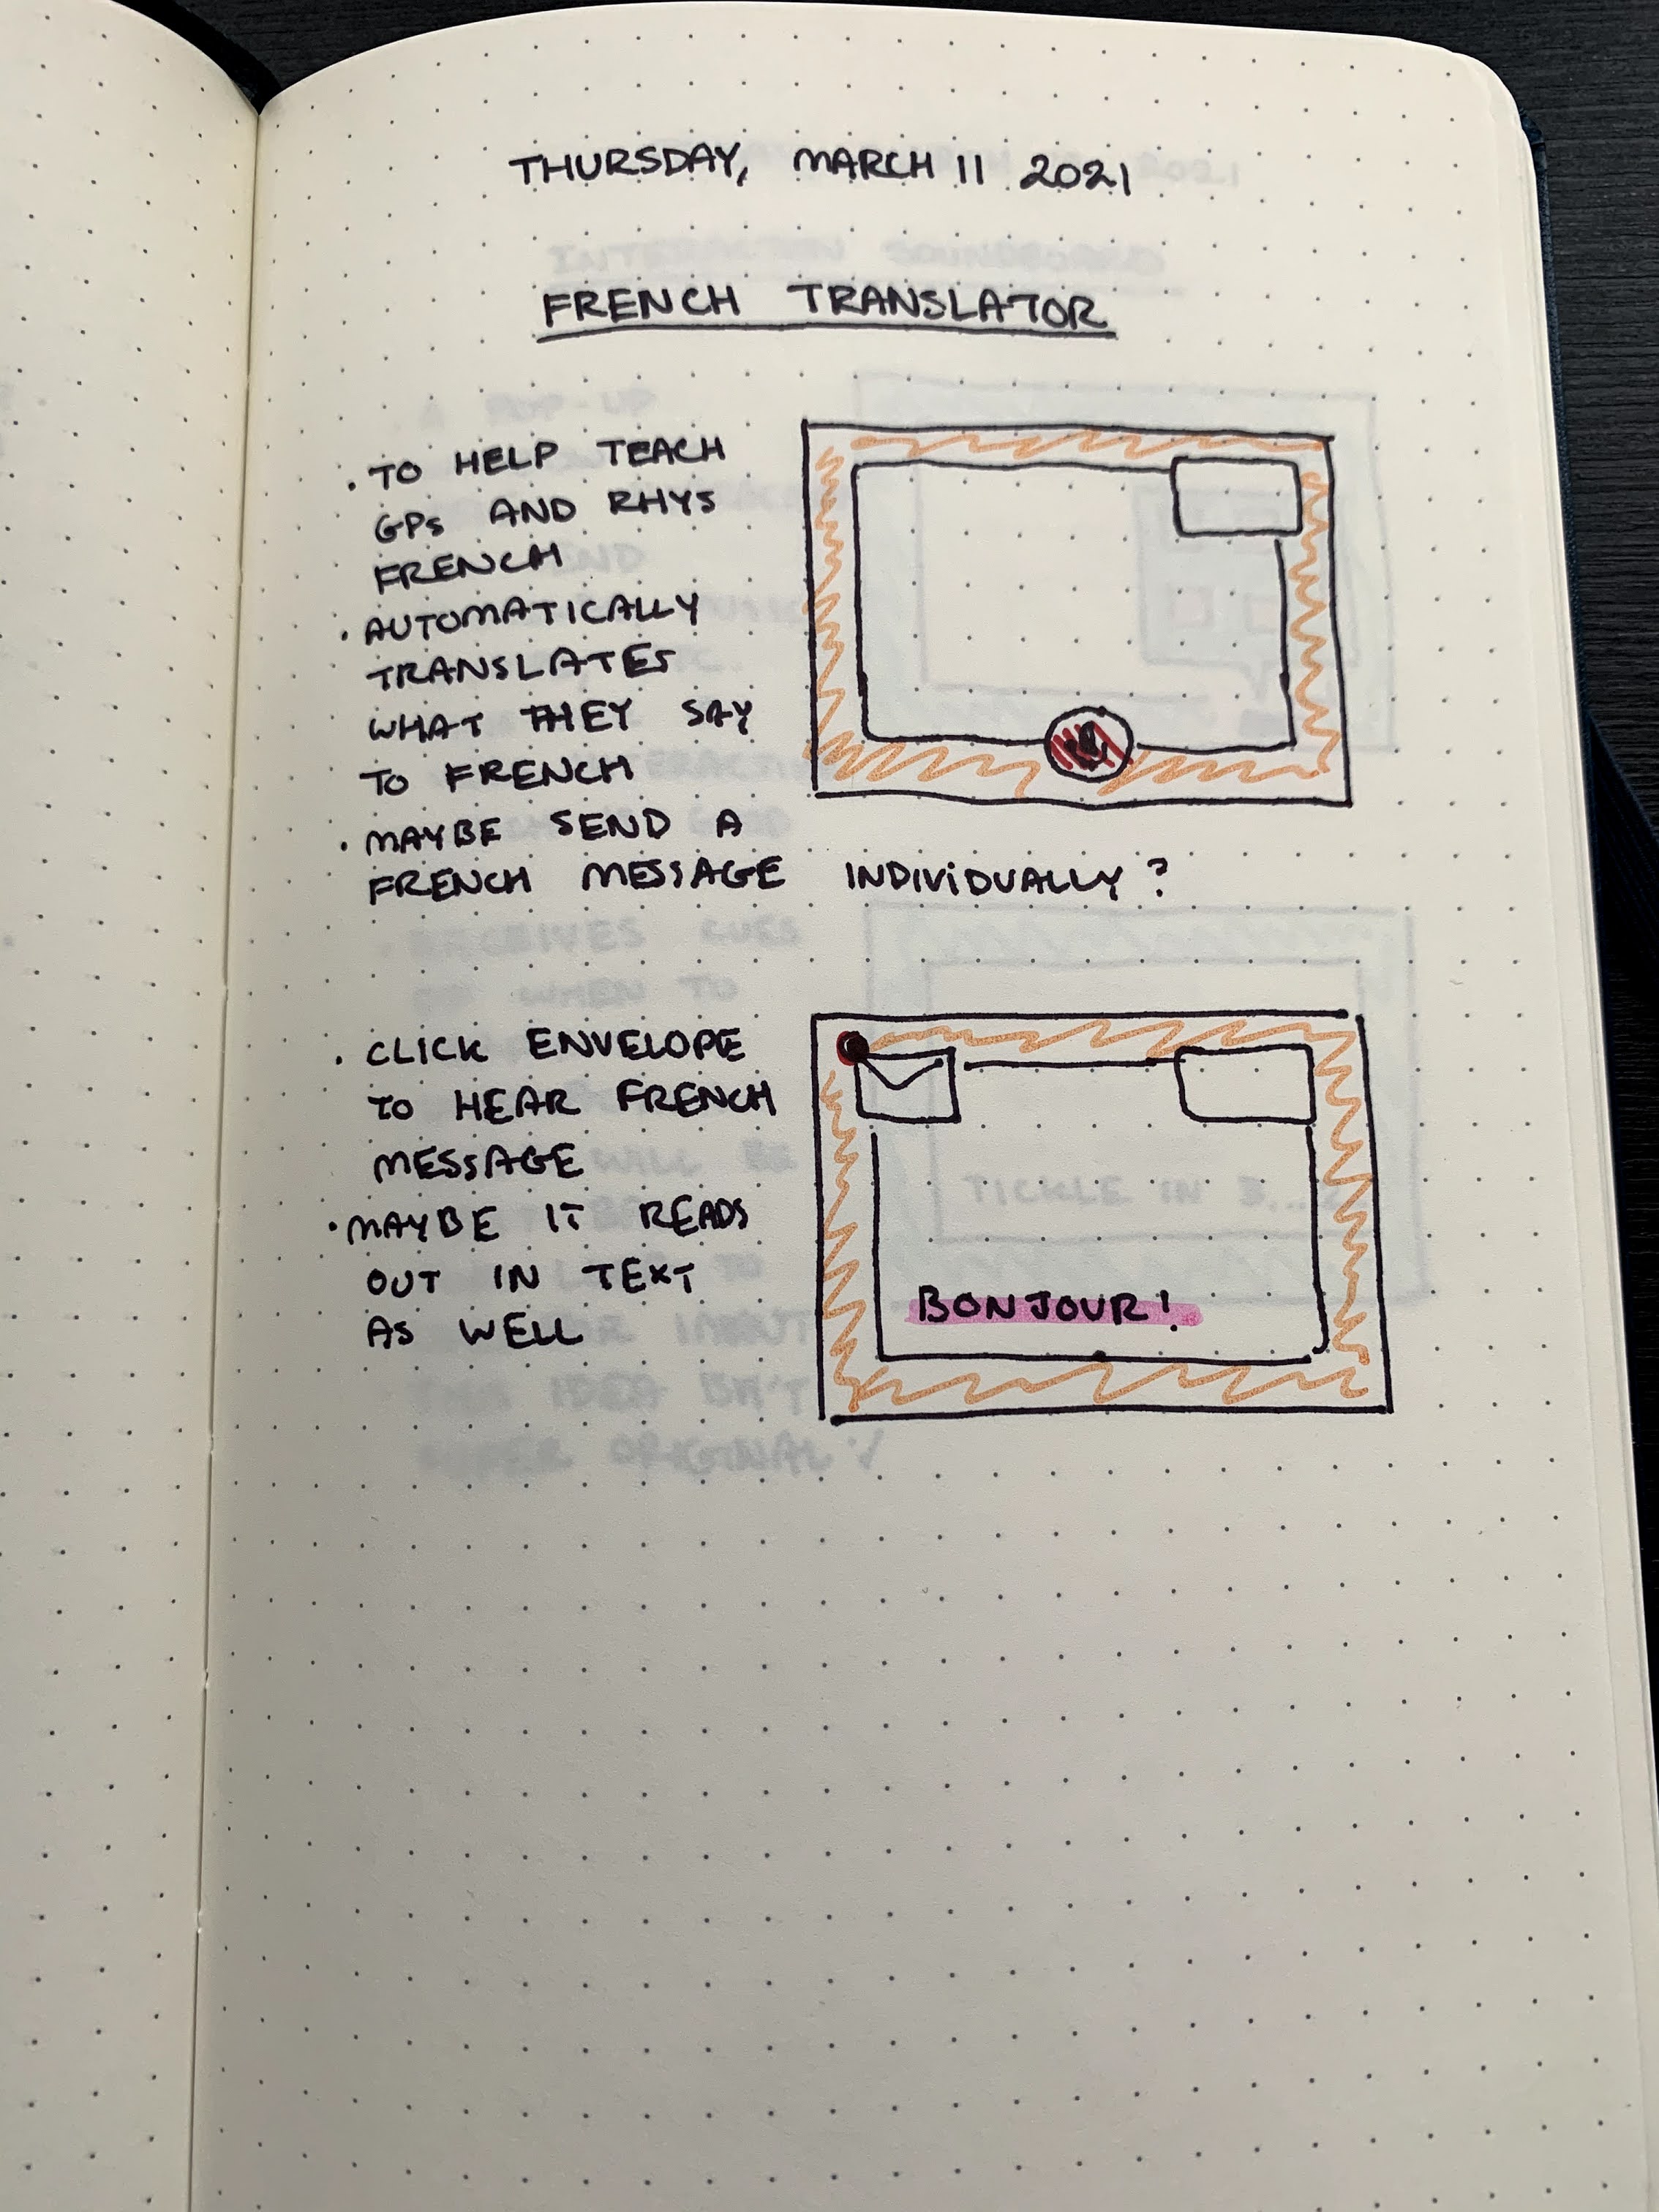 THURSDAY, MARCH 11 2021
FRENCH TRANSLATOR
. TO HELP TEACH
GPs AND RHYS
FRENCH
. AUTOMATICALLY
TRANSLATES
WHAT THEY SAY
TO FRENCH
. MAYBE SEND A
FRENCH MESSAGE INDIVIDUALLY?
. CLICK ENVELOPE
TO HEAR FRENCH
MESSAGE
. MAYBE IT READS
OUT IN TEXT
AS WELL
BONJOUR!